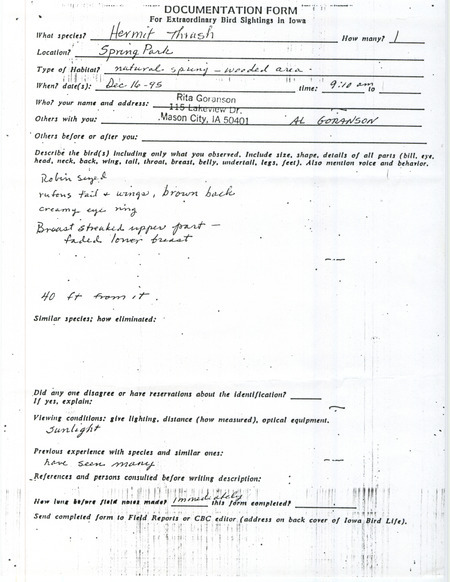 DOCUMENTATION FORM
For Extraordinary Bird Sightings in Iowa
What species? Hermit Thrush How many? 1
Location? Spring Park
Type of Habitat? natural spring - wooded area.
When? date(s): Dec 16-95 time: 9:10 am to
Who? your name and address: Rita Goranson
115 Lakeview Dr.
Others with you: Mason City, IA 50401 AL GORANSON
Others before or after you:
Describe the bird(s) including only what you observed. Include size, shape, details of all parts (bill, eye,
head, neck, back, wing, tail, throat, breast, belly, undertail, legs, feet). Also mention voice and behavior.
Robin sized
rufous tail & wings, brown back
creamy eye ring
Breast streaked upper part -
faded lower breast
40 ft from it.
Similar species; how eliminated:
Did any one disagree or have reservations about the identification?
If yes, explain:
Viewing conditions: give lighting, distance (how measured), optical equipment.
sunlight
Previous experience with species and similar ones:
have seen many
References and persons consulted before writing description:
How long before field notes made? immediately this form completed?
Send completed form to Field Reports or CBC editor (address on back cover of Iowa Bird Life).